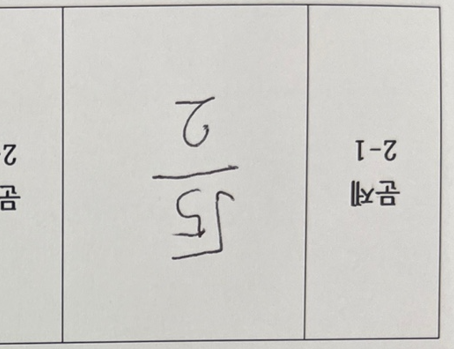 문제
2-1
√5/2
문
2-